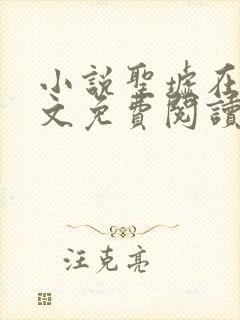 小說聖墟在
文免費閱讀
汪克亮